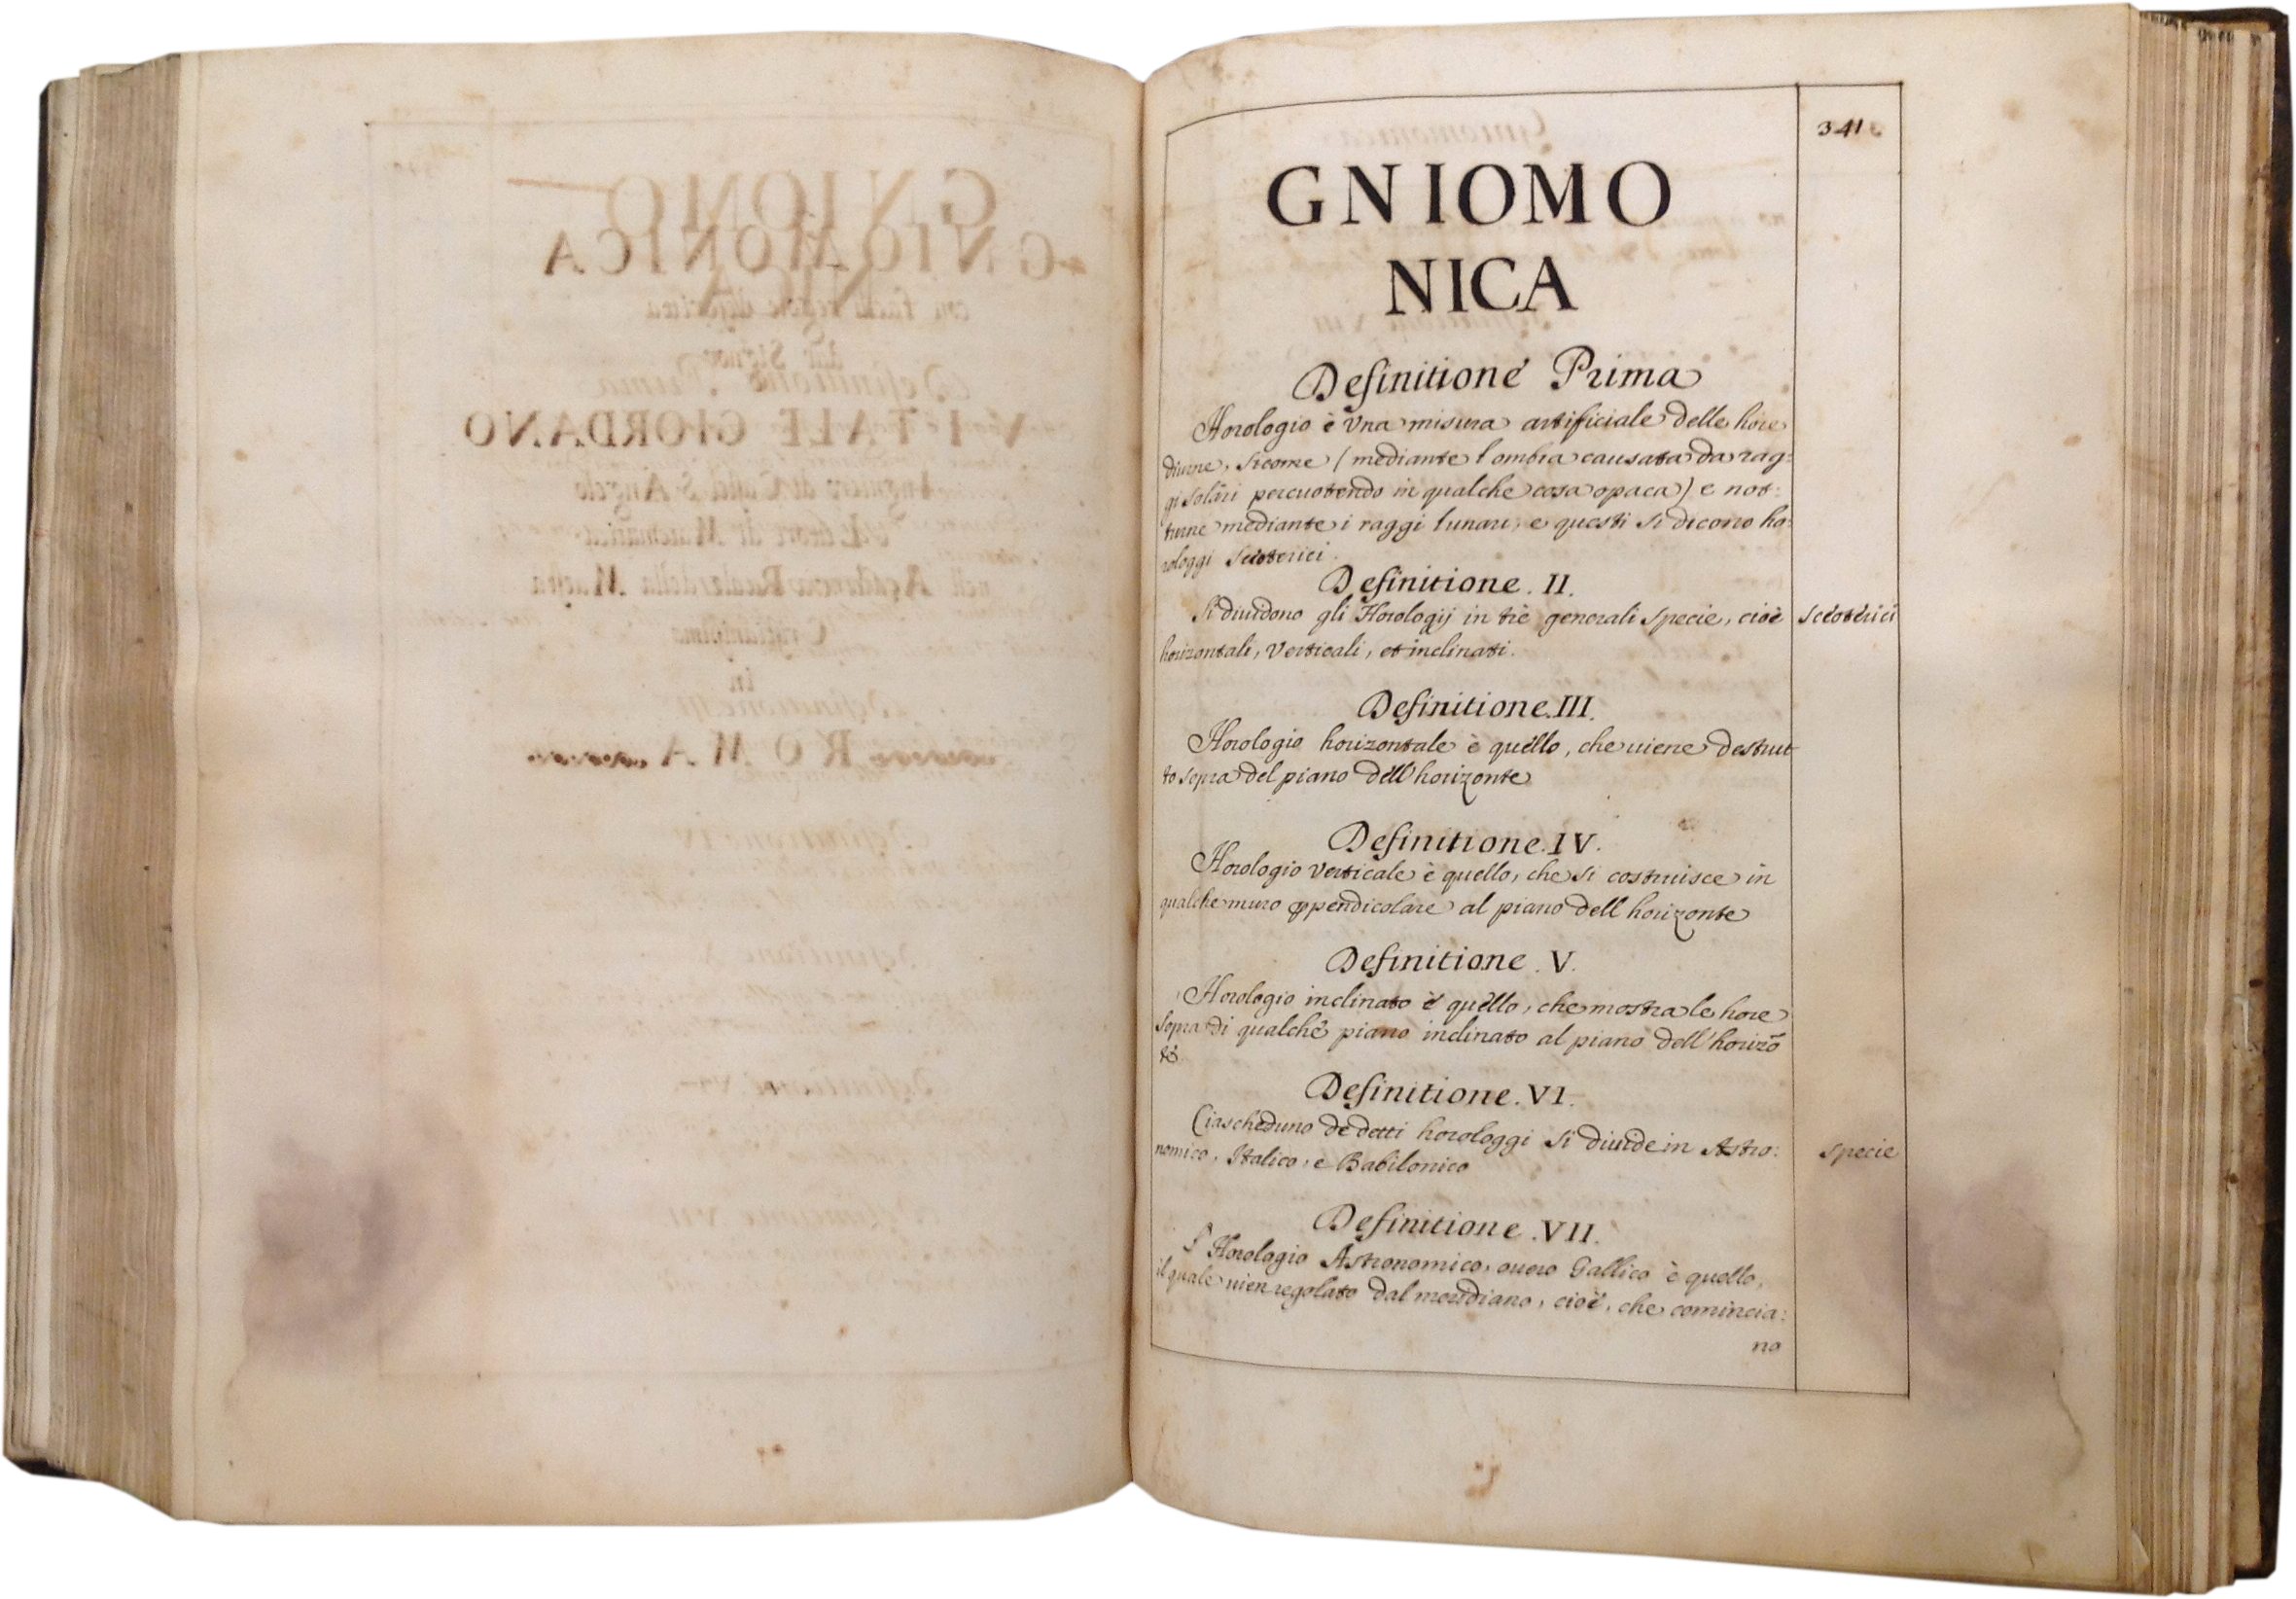 GNIOMONICA
VITALE GIORDANO
in
ROMA
341
GNIOMO
NICA
Definitione Prima
Horologio è una misura artificiale delle hore
diurne, sicome (mediante l ombra causata da rag:
gi solari percuotendo in qualche cosa opaca) e not:
turne mediante i raggi lunari, e questi si dicono ho:
rologgi scioterici.
Definitione. II.
Si diuidono gli Horologij in trè generali specie, cioè
scioterici
horizontali, verticali, et inclinati.
Definitione. III.
Horologio horizontale è quello, che uiene destrut
to sopra del piano dell' horizonte
Definitione. IV.
Horologio verticale è quello, che si costruisce in
qualche muro ꝑpendicolare al piano dell horizonte
Definitione. V.
Horologio inclinato è quello, che mostra le hore
sopra di qualche piano inclinato al piano dell' horizõ
te
Definitione. VI.
Ciascheduno de detti horologgi si diuide in Astro:
nomico, Italico, e Babilonico
specie
Definitione. VII.
l' Horologio Astronomico, ouero Gallico è quello,
il quale uien regolato dal meridiano, cioè, che comincia:
no